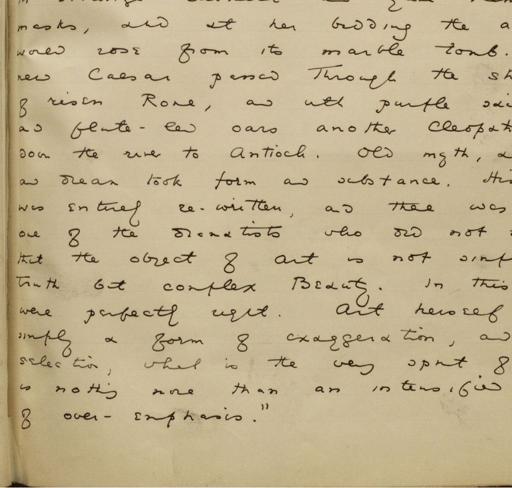 masks, and at her bidding the a
world rose from its marble tomb.
new Caesar passed Through the st
of risen Rome, and with purple sai
and flute-led oars another Cleopat
down the river to Antioch. Old myth, a
and dream took form and substance. His
was entirely re-written, and there was
one of the dramatists who did not
that the object of art is not simp
truth but complex Beauty. In this
were perfectly right. Art herself
simply a form of exaggeration, and
selection, which is the very spirit of
is nothing more than an intensified
of over-emphasis."